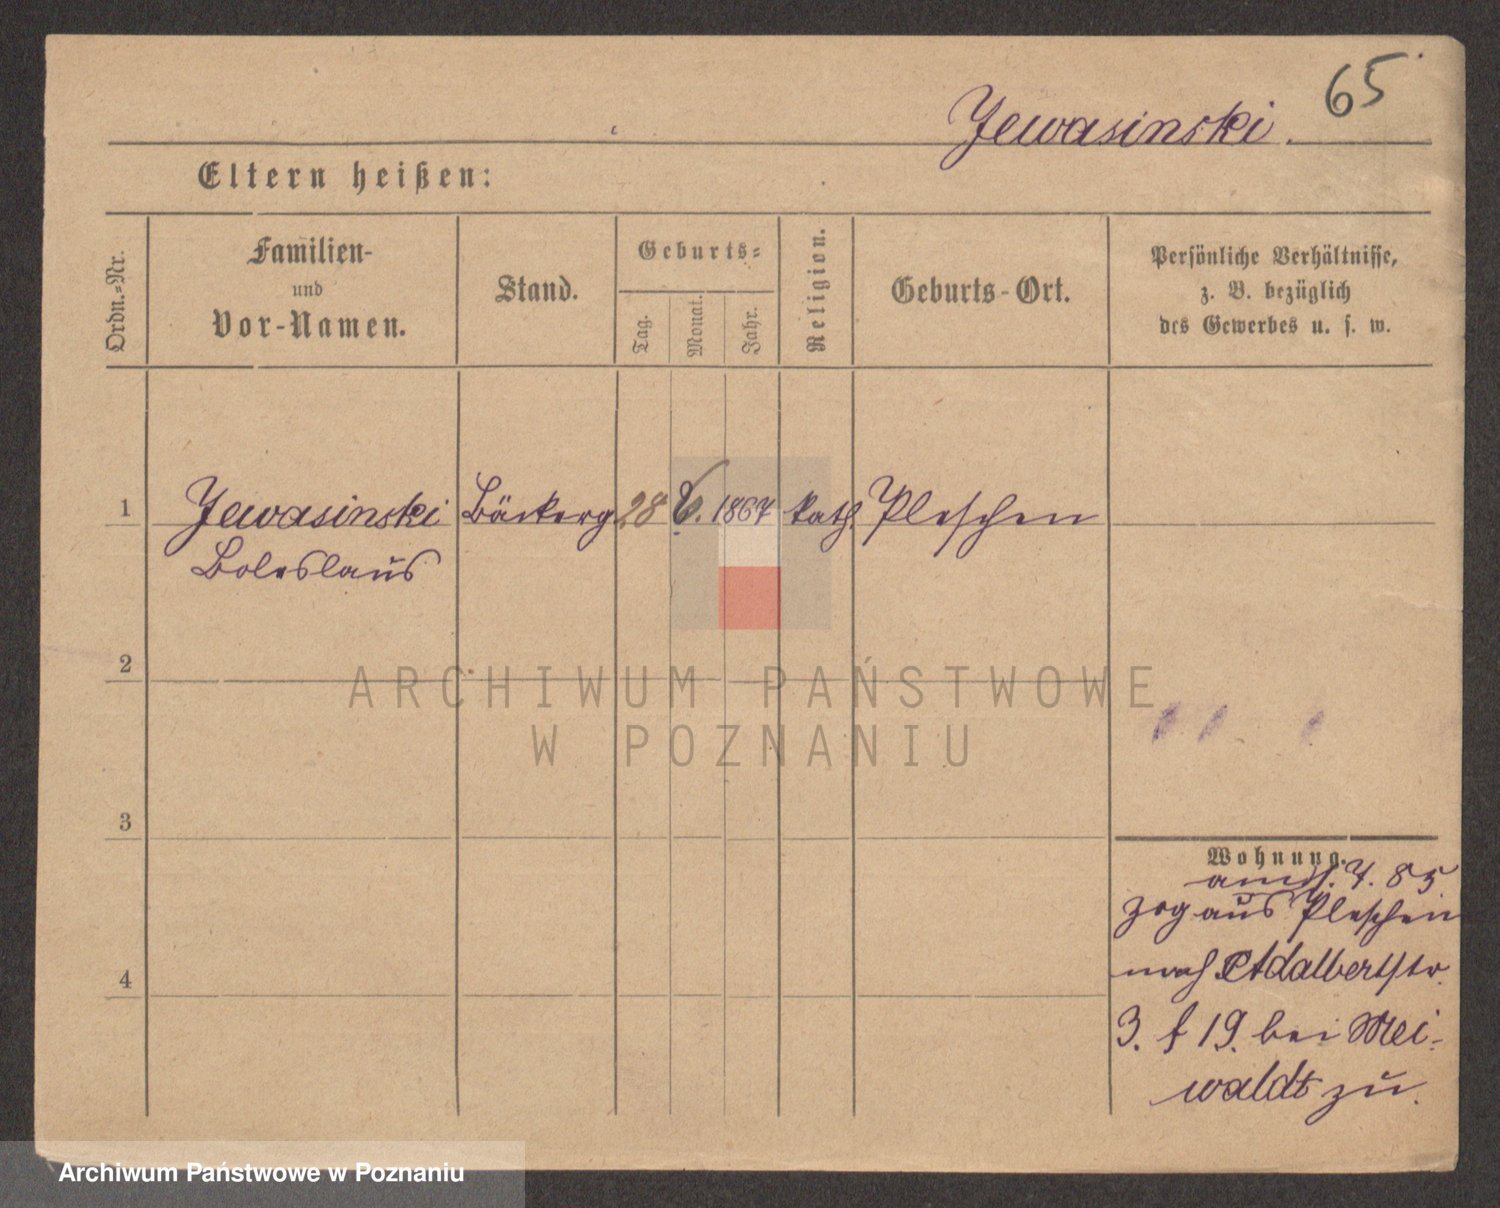 65
Jewasinski.
Eltern heißen:
Ordn.-Nr.
Familien-
und
Vor-Namen.
Stand.
Geburts-
Tag.
Monat.
Jahr.
Religion.
Geburts-Ort.
Persönliche Verhältnisse,
z. B. bezüglich
des Gewerbes u. s. w.
1 Jewasinski Bäckerg 28 6. 1867 kath. Pleschen
Boleslaus
2
ARCHIWUM PAŃSTWOWE
W POZNANIU
3
Wohnung.
4. 85
zog aus Pleschen
nach Adalbertstr.
4
3. f 19. bei Mei-
waldt zu.
Archiwum Państwowe w Poznaniu